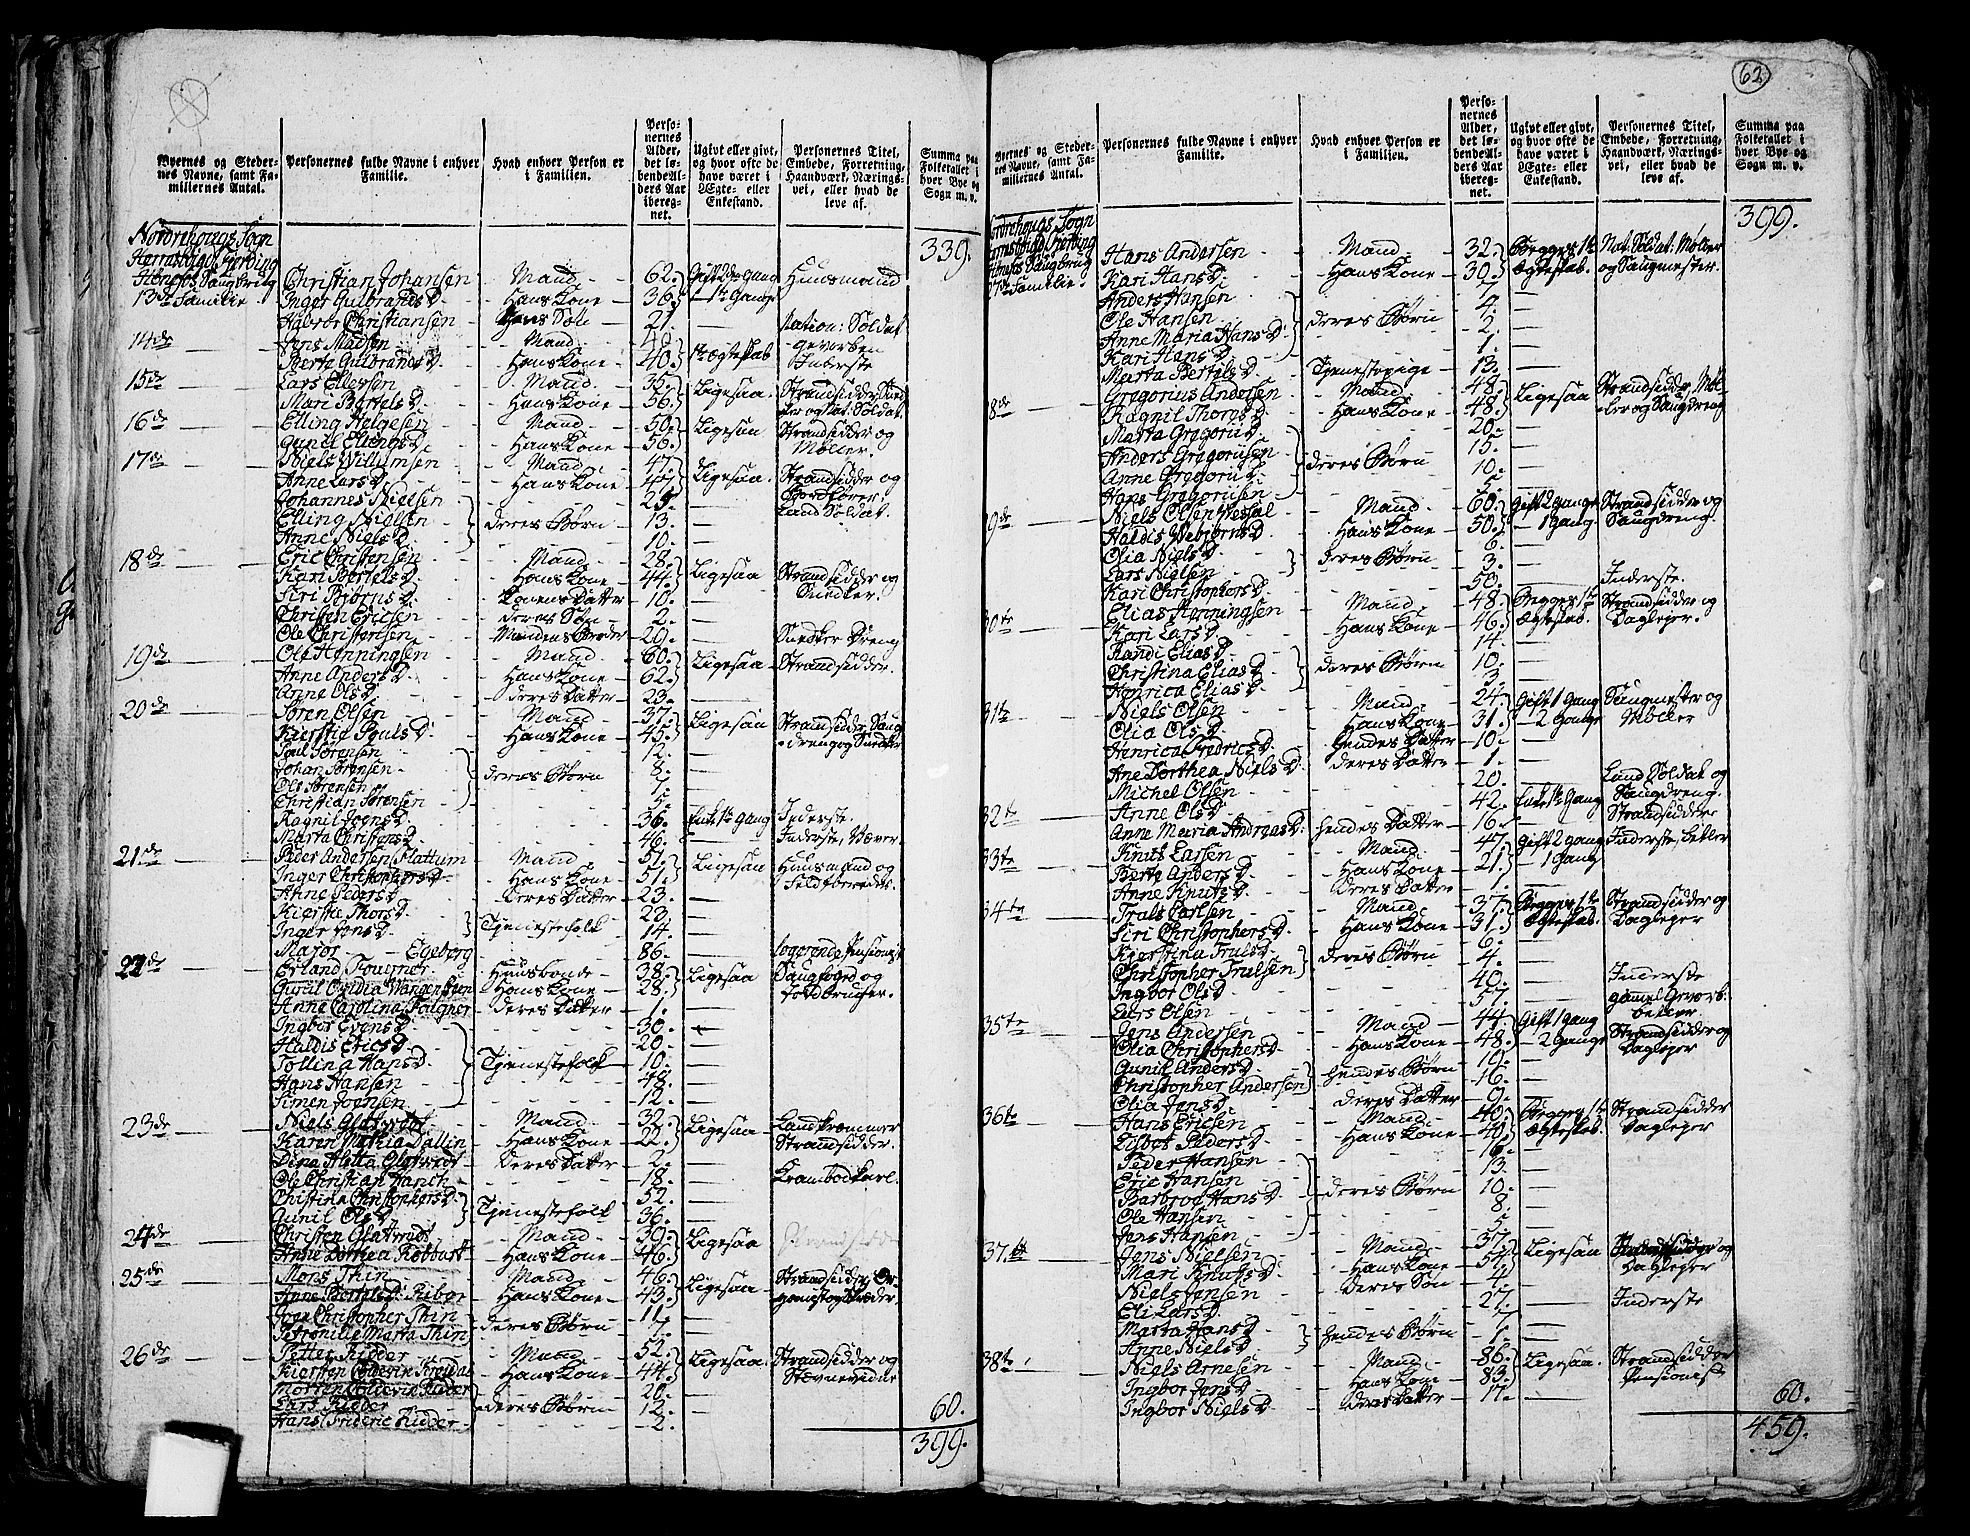 62
Byernes og Stedernes Navne, samt Familiernes Antal.
Personernes fulde Navne i enhver Familie.
Hvad enhver Person er i Familien.
Personernes Alder, det løbende Alders Aar iberegnet.
Ugivt eller givt, og hvor ofte de have været i Ægte- eller Enkestand.
Personernes Titel, Embede, Forretning, Haandværk, Næringsvei, eller hvad de leve af.
Summa paa Folketallet i hver Bye og Sogn m. v.
Nordrehougs Sogn 339.
Hønefos Saugbrug Christian Johansen Mand 62. Gift 2den Gang Huusmand
13de Familie Inger Gulbrands D. Hans Kone 36. 1te Gang
Halvor Christiansen Hans Søn 21. — Nation: Soldat
14de Jens Madsen Mand 40. 1te Ægteskab
Berte Gulbrands D. Hans Kone 40. Inderste
15de Lars Ellersen Mand 35. Ligesaa Strandsidder
Mari Bertels D. Hans Kone 56. og Nat: Soldat.
16de Elling Helgesen Mand 50. Ligesaa Strandsidder og
Gunil Ellings D. Hans Kone 56. Møller.
17de Niels Willumsen Mand 47. Ligesaa. Strandsidder og
Anne Lars D. Hans Kone 47.
Johannes Nielsen 23. — Land Soldat.
Elling Nielsen deres Børn 13. —
Anne Niels D. 10. —
18de Eric Christensen Mand 28. Ligesaa Strandsidder og
Kari Bertels D. Hans Kone 44. Snedker.
Siri Bjørns D. Konens Datter 10. —
Christen Ericsen deres Søn 2. —
Ole Christensen Mandens Broder 20. — Snedker Dreng
19de Ole Henningsen Mand 60. Ligesaa Strandsidder.
Anne Anders D. Hans Kone 62.
Anne Ols D. deres Datter 23. —
20de Søren Olsen Mand 37. Ligesaa Strandsidder Saug
Kierstie Pouls D. Hans Kone 45. dreng og Snedker
Poul Sørensen 12. —
Johan Sørensen deres Børn 8. —
Ole Sørensen 7. —
Christian Sørensen 5. —
Ragnil Joens D. 36. Enke 1te Gang Inderste.
Marta Christens D. 46. — Inderste, Væver.
21de Peder Andersen Flattum Mand 57. Ligesaa Huusmand og
Inger Christophers D. Hans Kone 51.
Anne Peders D. Deres Datter 23. —
Kierstie Thors D. 23. —
Inger Jens D. Tjenestefolk 14. —
Major — Egeberg 86. — logerende Pensionist
22de Erland Fougner Huusbonde 38. Ligesaa Saugfoged og
Gunil Ovidia Wangensteen Hans Kone 28. Jordbruger.
Anne Carolina Fougner deres Datter 1. —
Ingbor Evens D. 30. —
Haldis Erics D. 20. —
Tollina Hans D. Tjenestefolk 10. —
Hans Hansen 48. —
Simen Joensen 12. —
23de Niels Glatvedt Mand 32. Ligesaa Landkræmmer
Karen Mathia Dallin Hans Kone 22. Strandsidder.
Dina Aletta Glatvedt Deres Datter 2. —
Ole Christian Fanch 18. — Krambodkarl.
Christina Christophers D. 52. —
Gunil Ols D. Tjenestefolk 36. —
24de Christen Glatvedt Mand 39. Ligesaa Strandsidder
Anne Dorthea Robbart Hans Kone 46.
25de Mons Thin Mand 46. Ligesaa Strandsidder, Or-
Anne Bertelsd: Riber Hans Kone 43. ganist og Skræder.
Jens Christopher Thin deres Børn 11. —
Petronilie Marta Thin 7. —
26de Petter Ridder Mand 52. Ligesaa. Strandsidder og
Kiersten Colderin Hans Kone 44. Stævnevidne
Morten Colderin Ridder 20. —
Lars Ridder deres Børn 12. —
Hans Frideric Ridder 2.
60.
399.
Byernes og Stedernes Navne, samt Familiernes Antal.
Personernes fulde Navne i enhver Familie.
Hvad enhver Person er i Familien.
Personernes Alder, det løbende Alders Aar iberegnet.
Ugivt eller givt, og hvor ofte de have været i Ægte- eller Enkestand.
Personernes Titel, Embede, Forretning, Haandværk, Næringsvei, eller hvad de leve af.
Summa paa Folketallet i hver Bye og Sogn m. v.
Nordrehougs Sogn 399.
Hans Andersen Mand 32. Begges 1te Nat. Soldat: Møller
Hønefos Saugbrug Kari Hans D. Hans Kone 30. Ægteskab. og Saugmester.
27de Familie. Anders Hansen 7. —
Ole Hansen deres Børn 4. —
Anne Maria Hans D. 2. —
Kari Hans D. 1. —
Marta Bertels D. Tjenestepige 13. —
8de Gregorius Andersen Mand 48. Ligesaa Strandsidder, Møl-
Ragnil Thors D. Hans Kone 48. ler og Saugdreng
Marta Gregorii D. 20. —
Anders Gregoriisen deres Børn 15. —
Anne Gregorii D. 10. —
Hans Gregoriisen 5. —
9de Niels Olsen Vessal Mand 60. Gift 2 Gange Strandsidder og
Haldis Webjørns D. Hans Kone 50. 1 Gang Saugdreng.
Olia Niels D. deres Børn 6. —
Lars Nielsen 3. —
Kari Christophers D. 50. — Inderste.
30te Elias Henningsen Mand 48. Begges 1te Strandsidder og
Kari Lars D. Hans Kone 46. Ægteskab. Dagleyer.
Randi Elias D. 14. —
Christina Elias D. deres Børn 10. —
Henrica Elias D. 3. —
31te Niels Olsen Mand 24. Gift 1 Gang Saugmester og
Olia Ols D. Hans Kone 31. 2 Gange Møller
Henrica Fredrics D. Hendes Datter 10. —
Ane Dorthea Niels D. deres Datter 1. —
Michel Olsen 20. — Land Soldat og Saugdreng.
32te Anne Ols D. 42. Enke 1te Gang Strandsidder
Anne Maria Andreas D. Hendes Datter 16. —
33te Knut Larsen Mand 47. Gift 2 Gang Inderste, Betler
Berte Anders D. Hans Kone 21. 1 Gang
Anne Knuts D. deres Datter 1. —
34te Truls Carlsen Mand 37. Begges 1te Strandsidder og
Siri Christophers D. Hans Kone 31. Ægteskab. Dagleyer
Kierstina Truls D. deres Børn 6. —
Christopher Trulsen 4. —
Ingbor Ols D. 40. — Inderste
Lars Olsen 57. — gamel Gevorb: betler
35te Jens Andersen Mand 44. Gift 1 Gang Strandsidder og
Olia Christophers D. Hans Kone 48. 2 Gange Dagleyer
Gunil Anders D. hendes Børn 10. —
Christopher Andersen 16. —
Olia Jens D. deres Datter 9. —
36te Hans Ericsen Mand 40. Begges 1te Strandsidder
Eltbet Peders D. Hans Kone 40. Ægteskab. Dagleyer
Peder Hansen 16. —
Eric Hansen 13. —
Barbroe Hans D. deres Børn 10. —
Ole Hansen 8. —
Jens Hansen 5. —
37te Jens Nielsen Mand 37. Ligesaa Strandsidder og
Mari Knuts D. Hans Kone 57. Dagleyer
Niels Jensen deres Søn 4. —
Eli Lars D. 27. — Inderste
Marta Hans D. hendes Børn 7. —
Anne Niels D. 1. —
38te Niels Arnesen Mand 86. Ligesaa. Strandsidder
Ingbor Jens D. Hans Kone 83. Pensionist
Ingbor Niels D. deres Datter 17. —
60.
459.